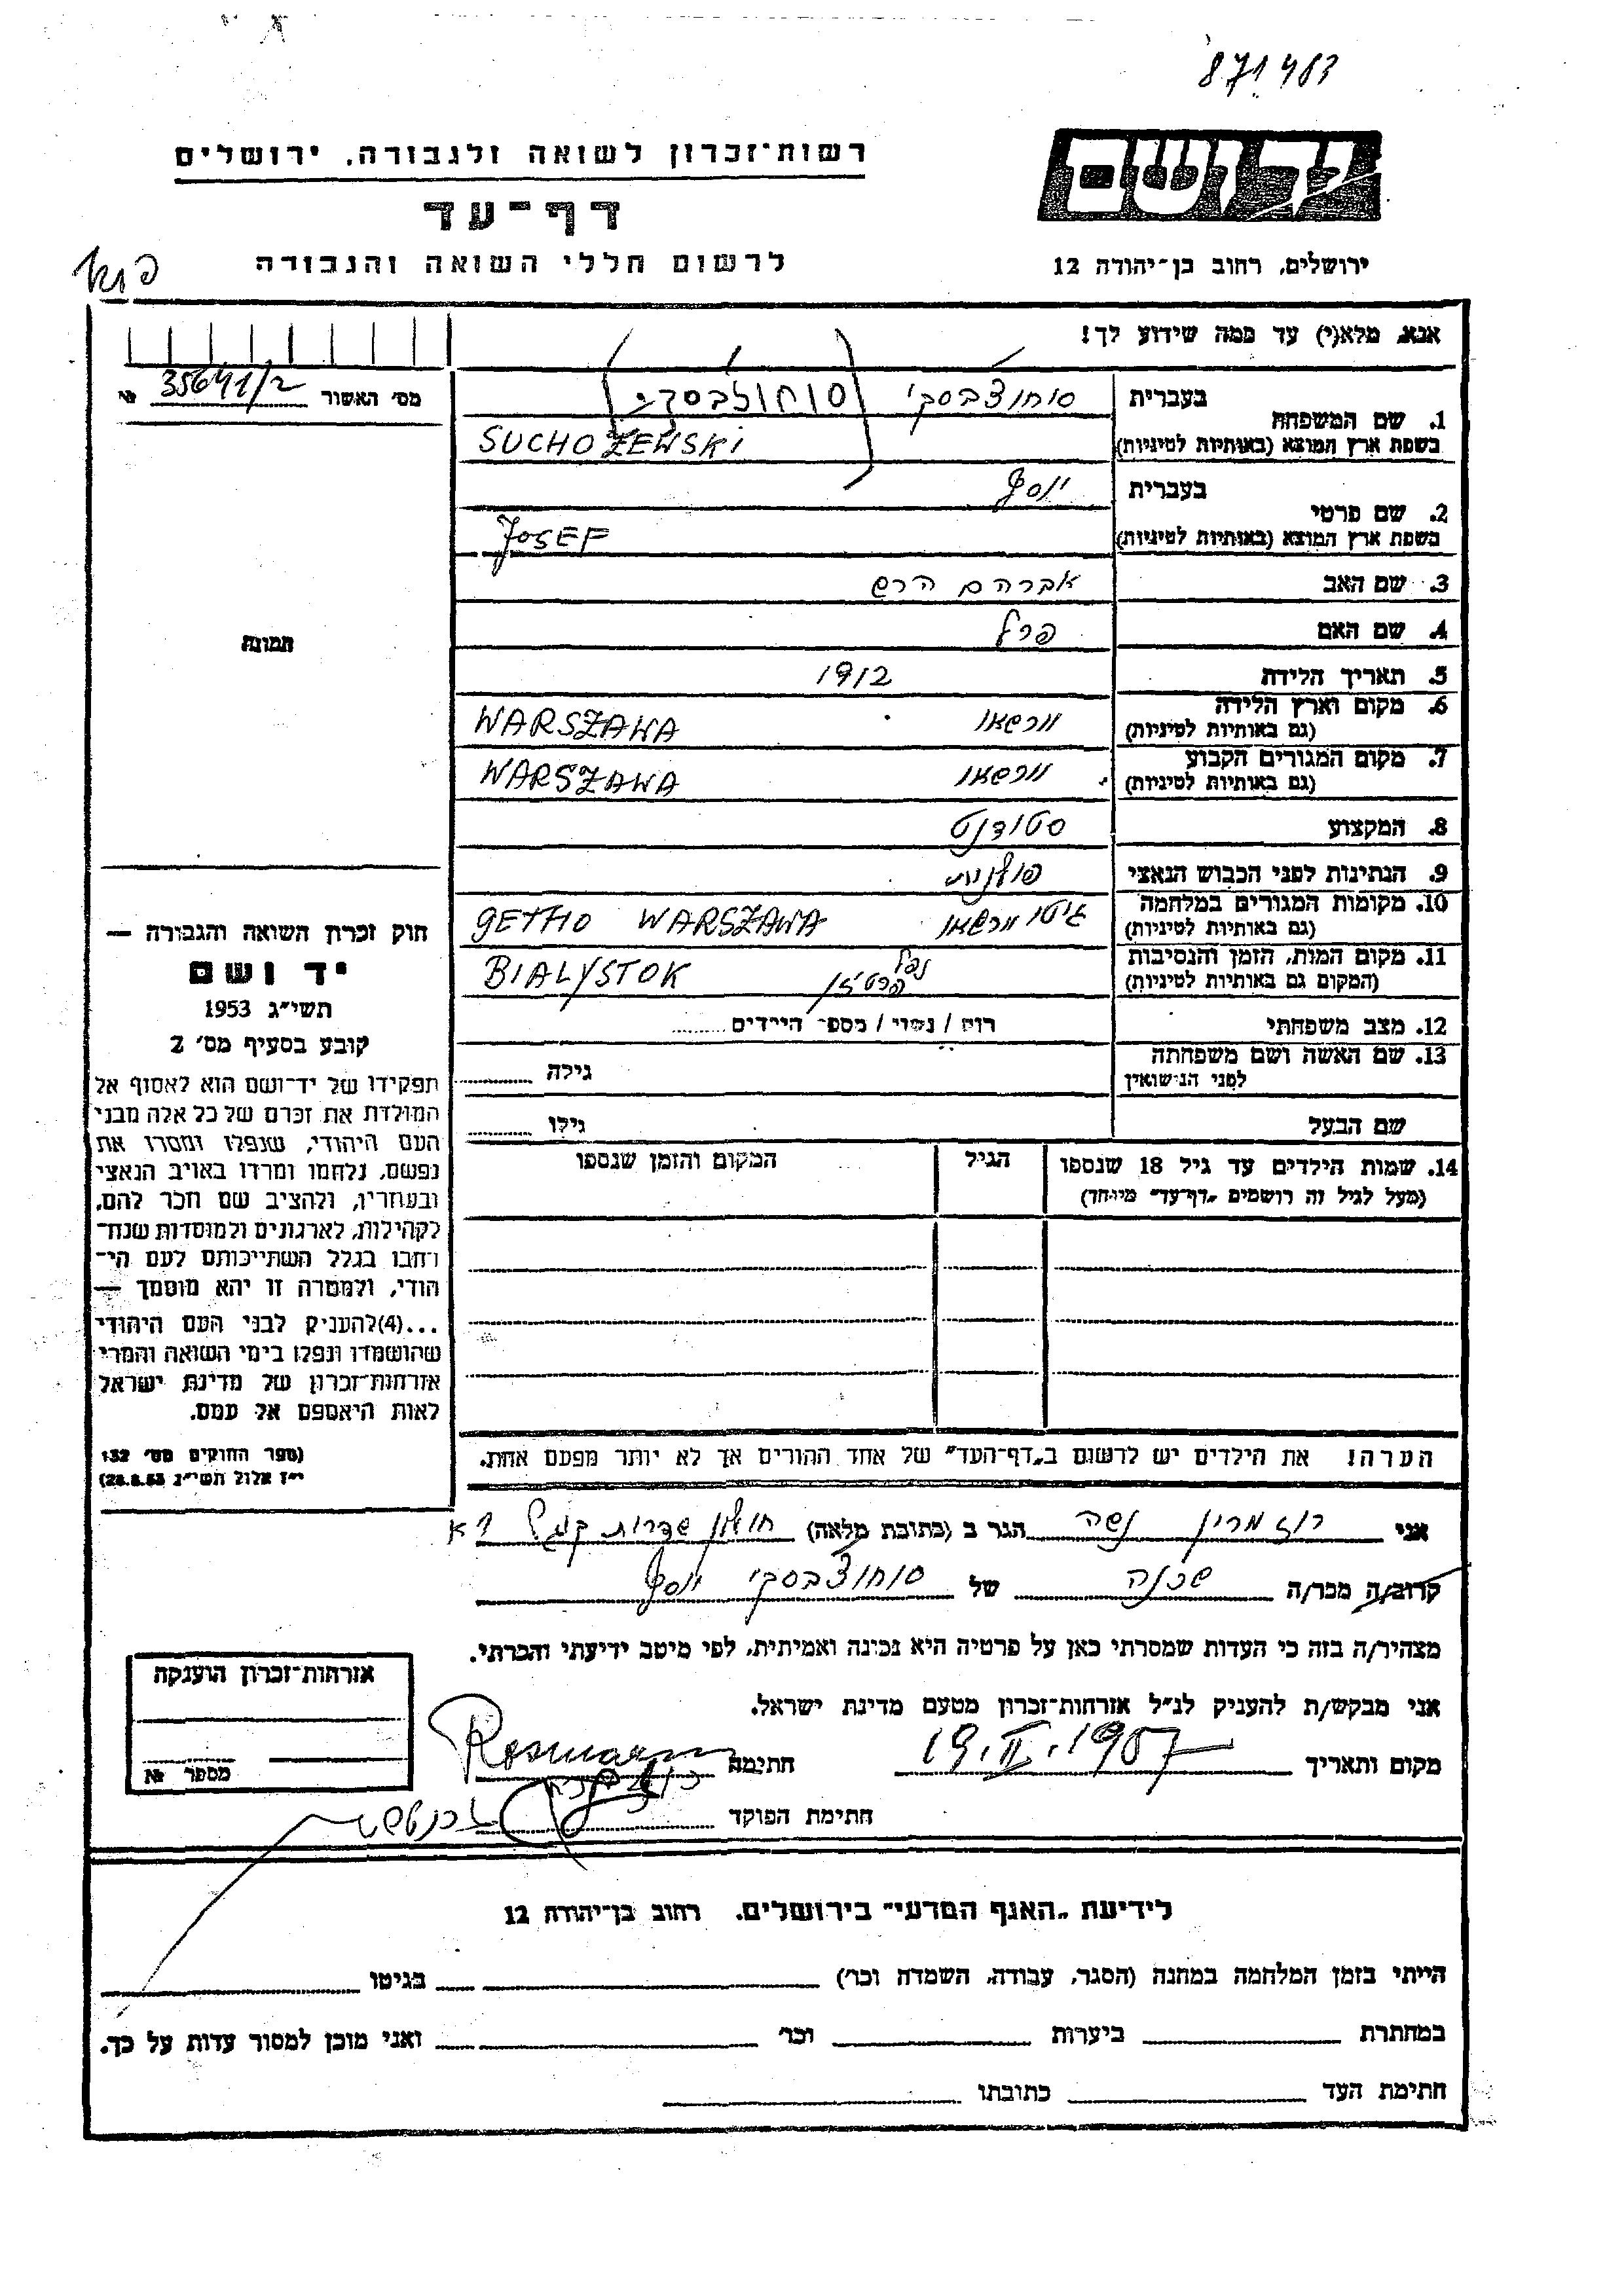 871483
יד ושם
רשות־זכרון לשואה ולגבורה, ירושלים
דף־עד
לרשום חללי השואה והגבורה
ירושלים, רחוב בן־יהודה 12
אנא, מלא(י) עד כמה שידוע לך!
מס׳ האשור 35641/2 №
תמונה
1. שם המשפחה
בעברית סוחוצ׳בסקי (סוחוז׳בסקי)
בשפת ארץ המוצא (באותיות לטיניות) SUCHOŻEWSKI
2. שם פרטי
בעברית יוסף
בשפת ארץ המוצא (באותיות לטיניות) JOSEF
3. שם האב אברהם הרש
4. שם האם פרל
5. תאריך הלידה 1912
6. מקום וארץ הלידה (גם באותיות לטיניות) וורשאו WARSZAWA
7. מקום המגורים הקבוע (גם באותיות לטיניות) וורשאו WARSZAWA
8. המקצוע סטודנט
9. הנתינות לפני הכבוש הנאצי פולנית
10. מקומות המגורים במלחמה (גם באותיות לטיניות) גיטו וורשאו GETTO WARSZAWA
11. מקום המות, הזמן והנסיבות (המקום גם באותיות לטיניות) נפל פרטיזן BIALYSTOK
12. מצב משפחתי רוק / נשוי / מספר הילדים
13. שם האשה ושם משפחתה לפני הנישואין גילה
שם הבעל גילו
14. שמות הילדים עד גיל 18 שנספו
(מעל לגיל זה רושמים „דף־עד״ מיוחד)
הגיל
המקום והזמן שנספו
הערה! את הילדים יש לרשום ב„דף־העד״ של אחד ההורים אך לא יותר מפעם אחת.
חוק זכרון השואה והגבורה —
יד ושם
תשי״ג 1953
קובע בסעיף מס׳ 2
תפקידו של יד־ושם הוא לאסוף אל
המולדת את זכרם של כל אלה מבני
העם היהודי, שנפלו ומסרו את
נפשם, נלחמו ומרדו באויב הנאצי
ובעוזריו, ולהציב שם וזכר להם,
לקהילות, לארגונים ולמוסדות שנח־
רבו בגלל השתייכותם לעם הי־
הודי, ולמטרה זו יהא מוסמך —
...(4) להעניק לבני העם היהודי
שהושמדו ונפלו בימי השואה והמרי
אזרחות־זכרון של מדינת ישראל
לאות היאספם אל עמם.
(ספר החוקים מס׳ 132
י״ז אלול תשי״ג 28.8.53)
אני רוזמרין נשה הגר ב (כתובת מלאה) חולון שדרות קוגל 1 א
קרוב/ה מכר/ה שכנה של סוחוצ׳בסקי יוסף
מצהיר/ה בזה כי העדות שמסרתי כאן על פרטיה היא נכונה ואמיתית, לפי מיטב ידיעתי והכרתי.
אני מבקש/ת להעניק לנ״ל אזרחות־זכרון מטעם מדינת ישראל.
מקום ותאריך 19.II.1957 חתימה Rosmarin
חתימת הפוקד
אזרחות־זכרון הוענקה
מספר №
לידיעת „האגף המדעי״ בירושלים, רחוב בן־יהודה 12
הייתי בזמן המלחמה במחנה (הסגר, עבודה, השמדה וכו׳) בגיטו
במחתרת ביערות וכו׳ ואני מוכן למסור עדות על כך.
חתימת העד כתובתו